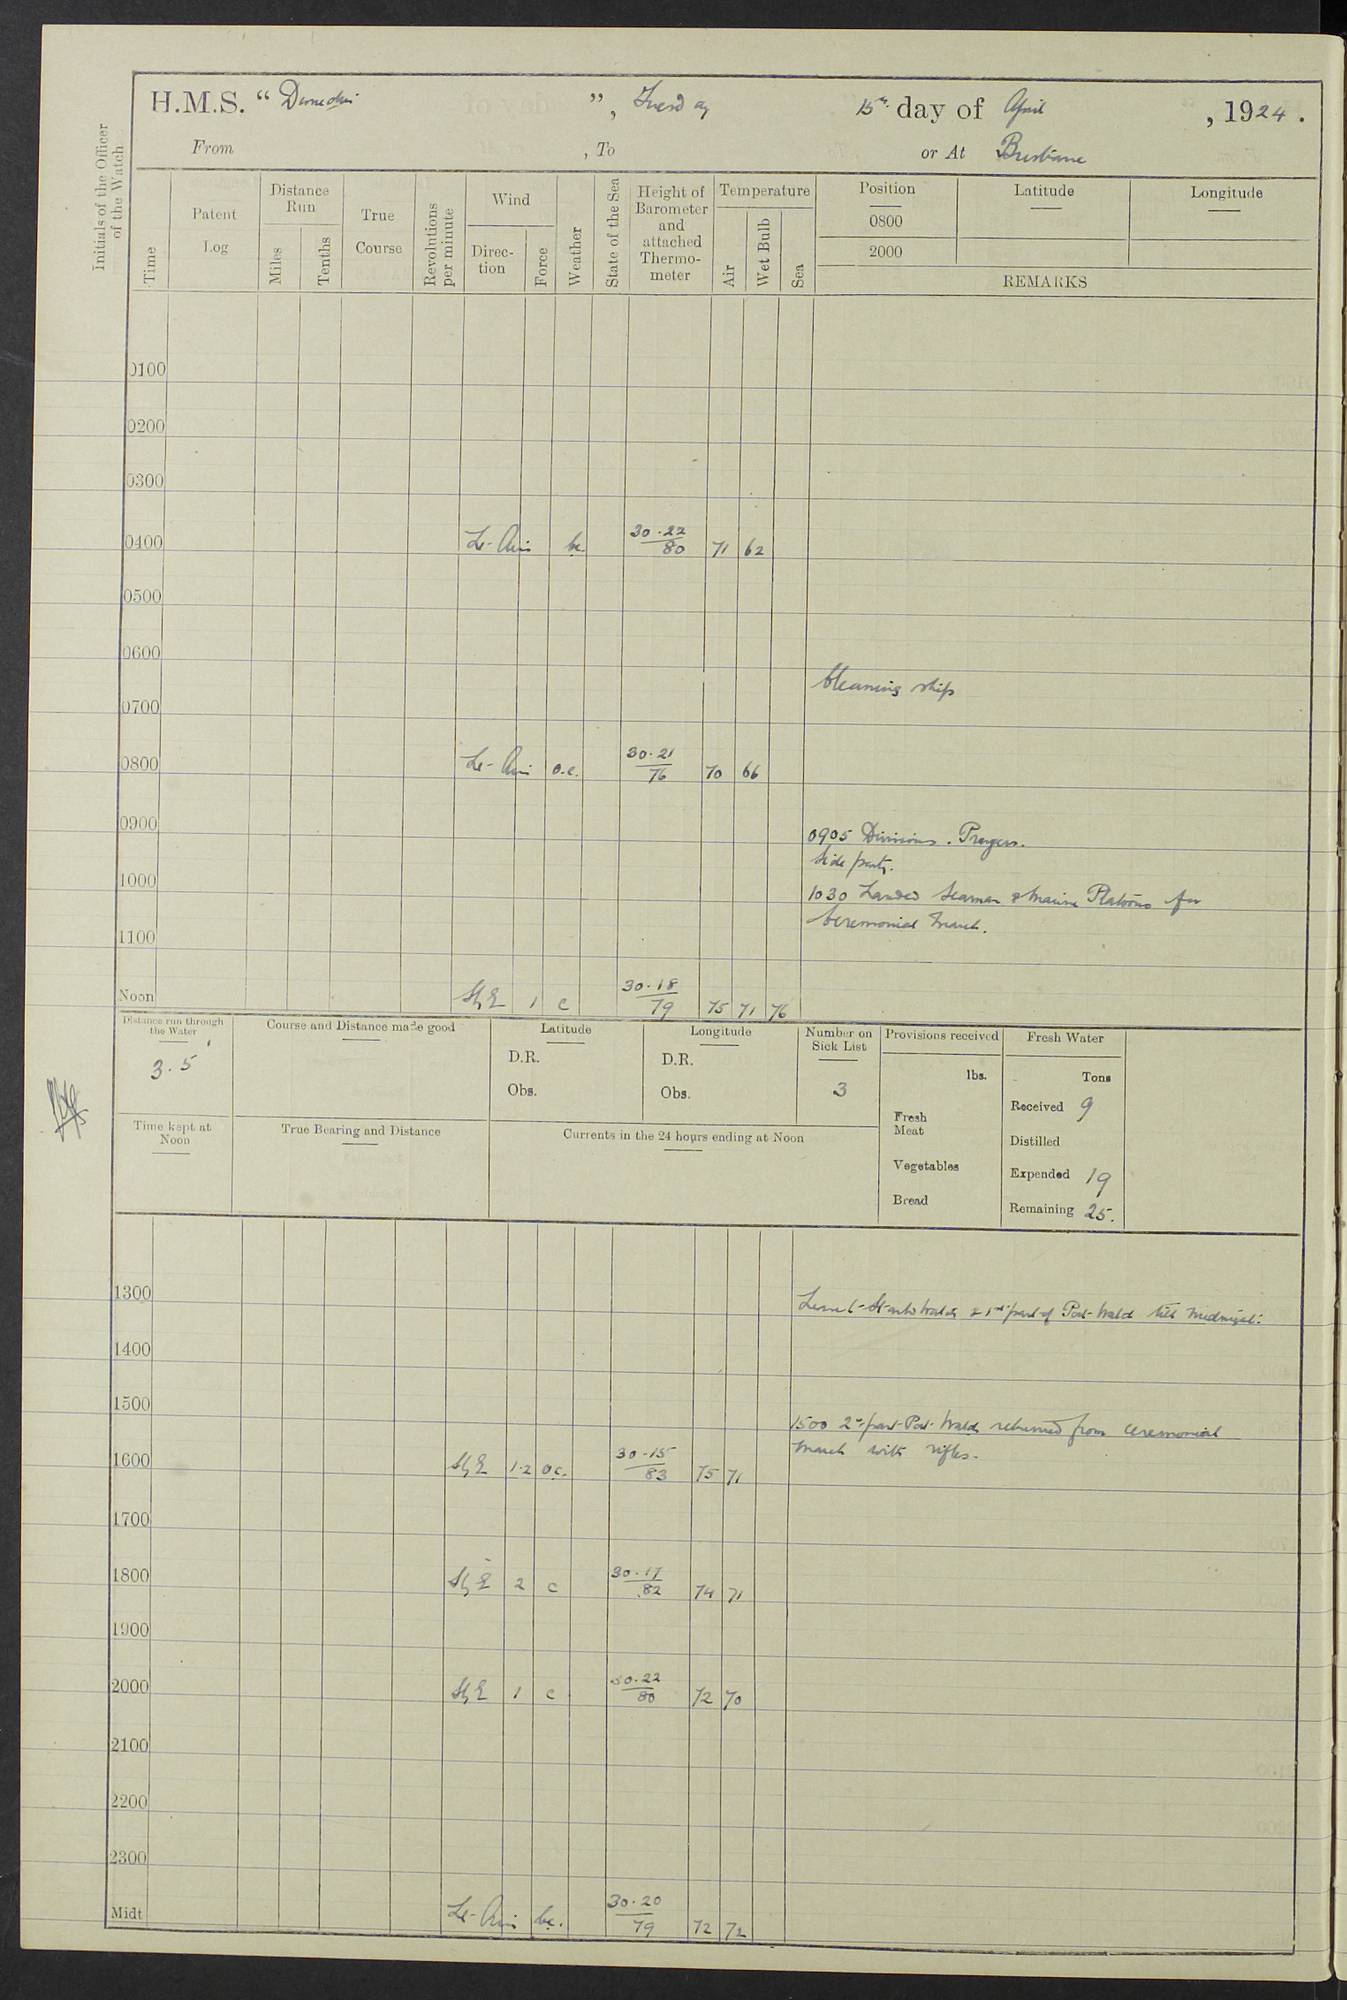 H.M.S. “ Dunedin ”, Tuesday 15th day of April , 1924 .
From , To or At Brisbane
Initials of the Officer of the Watch
Time
Patent Log
Distance Run
Miles
Tenths
True Course
Revolutions per minute
Wind
Direction
Force
Weather
State of the Sea
Height of Barometer and attached Thermometer
Temperature
Air
Wet Bulb
Sea
Position
Latitude
Longitude
0800
2000
REMARKS
0100
0200
0300
0400 Lt. Airs bc. 30.22 80 71 62
0500
0600
Cleaning ship
0700
0800 Lt. Airs o.c. 30.21 76 70 66
0900
0905 Divisions. Prayers.
Side party.
1000
1030 Landed Seaman & Marine Platoons for
Ceremonial March.
1100
Noon SbE 1 c 30.18 79 75 71 76
Distance run through the Water
3.5
Course and Distance made good
Latitude
D.R.
Obs.
Longitude
D.R.
Obs.
Number on Sick List
3
Provisions received
lbs.
Fresh Meat
Vegetables
Bread
Fresh Water
Tons
Received 9
Distilled
Expended 19
Remaining 25.
Time kept at Noon
True Bearing and Distance
Currents in the 24 hours ending at Noon
1300
Leave to Starbd Watch & 1st part of Port Watch till Midnight.
1400
1500
1500 2nd part Port Watch returned from ceremonial
March with rifles.
1600 SbE 1.2 oc. 30.15 83 75 71
1700
1800 SbE 2 c 30.17 82 74 71
1900
2000 SbE 1 c 30.22 80 72 70
2100
2200
2300
Midt Lt. Airs bc. 30.20 79 72 72